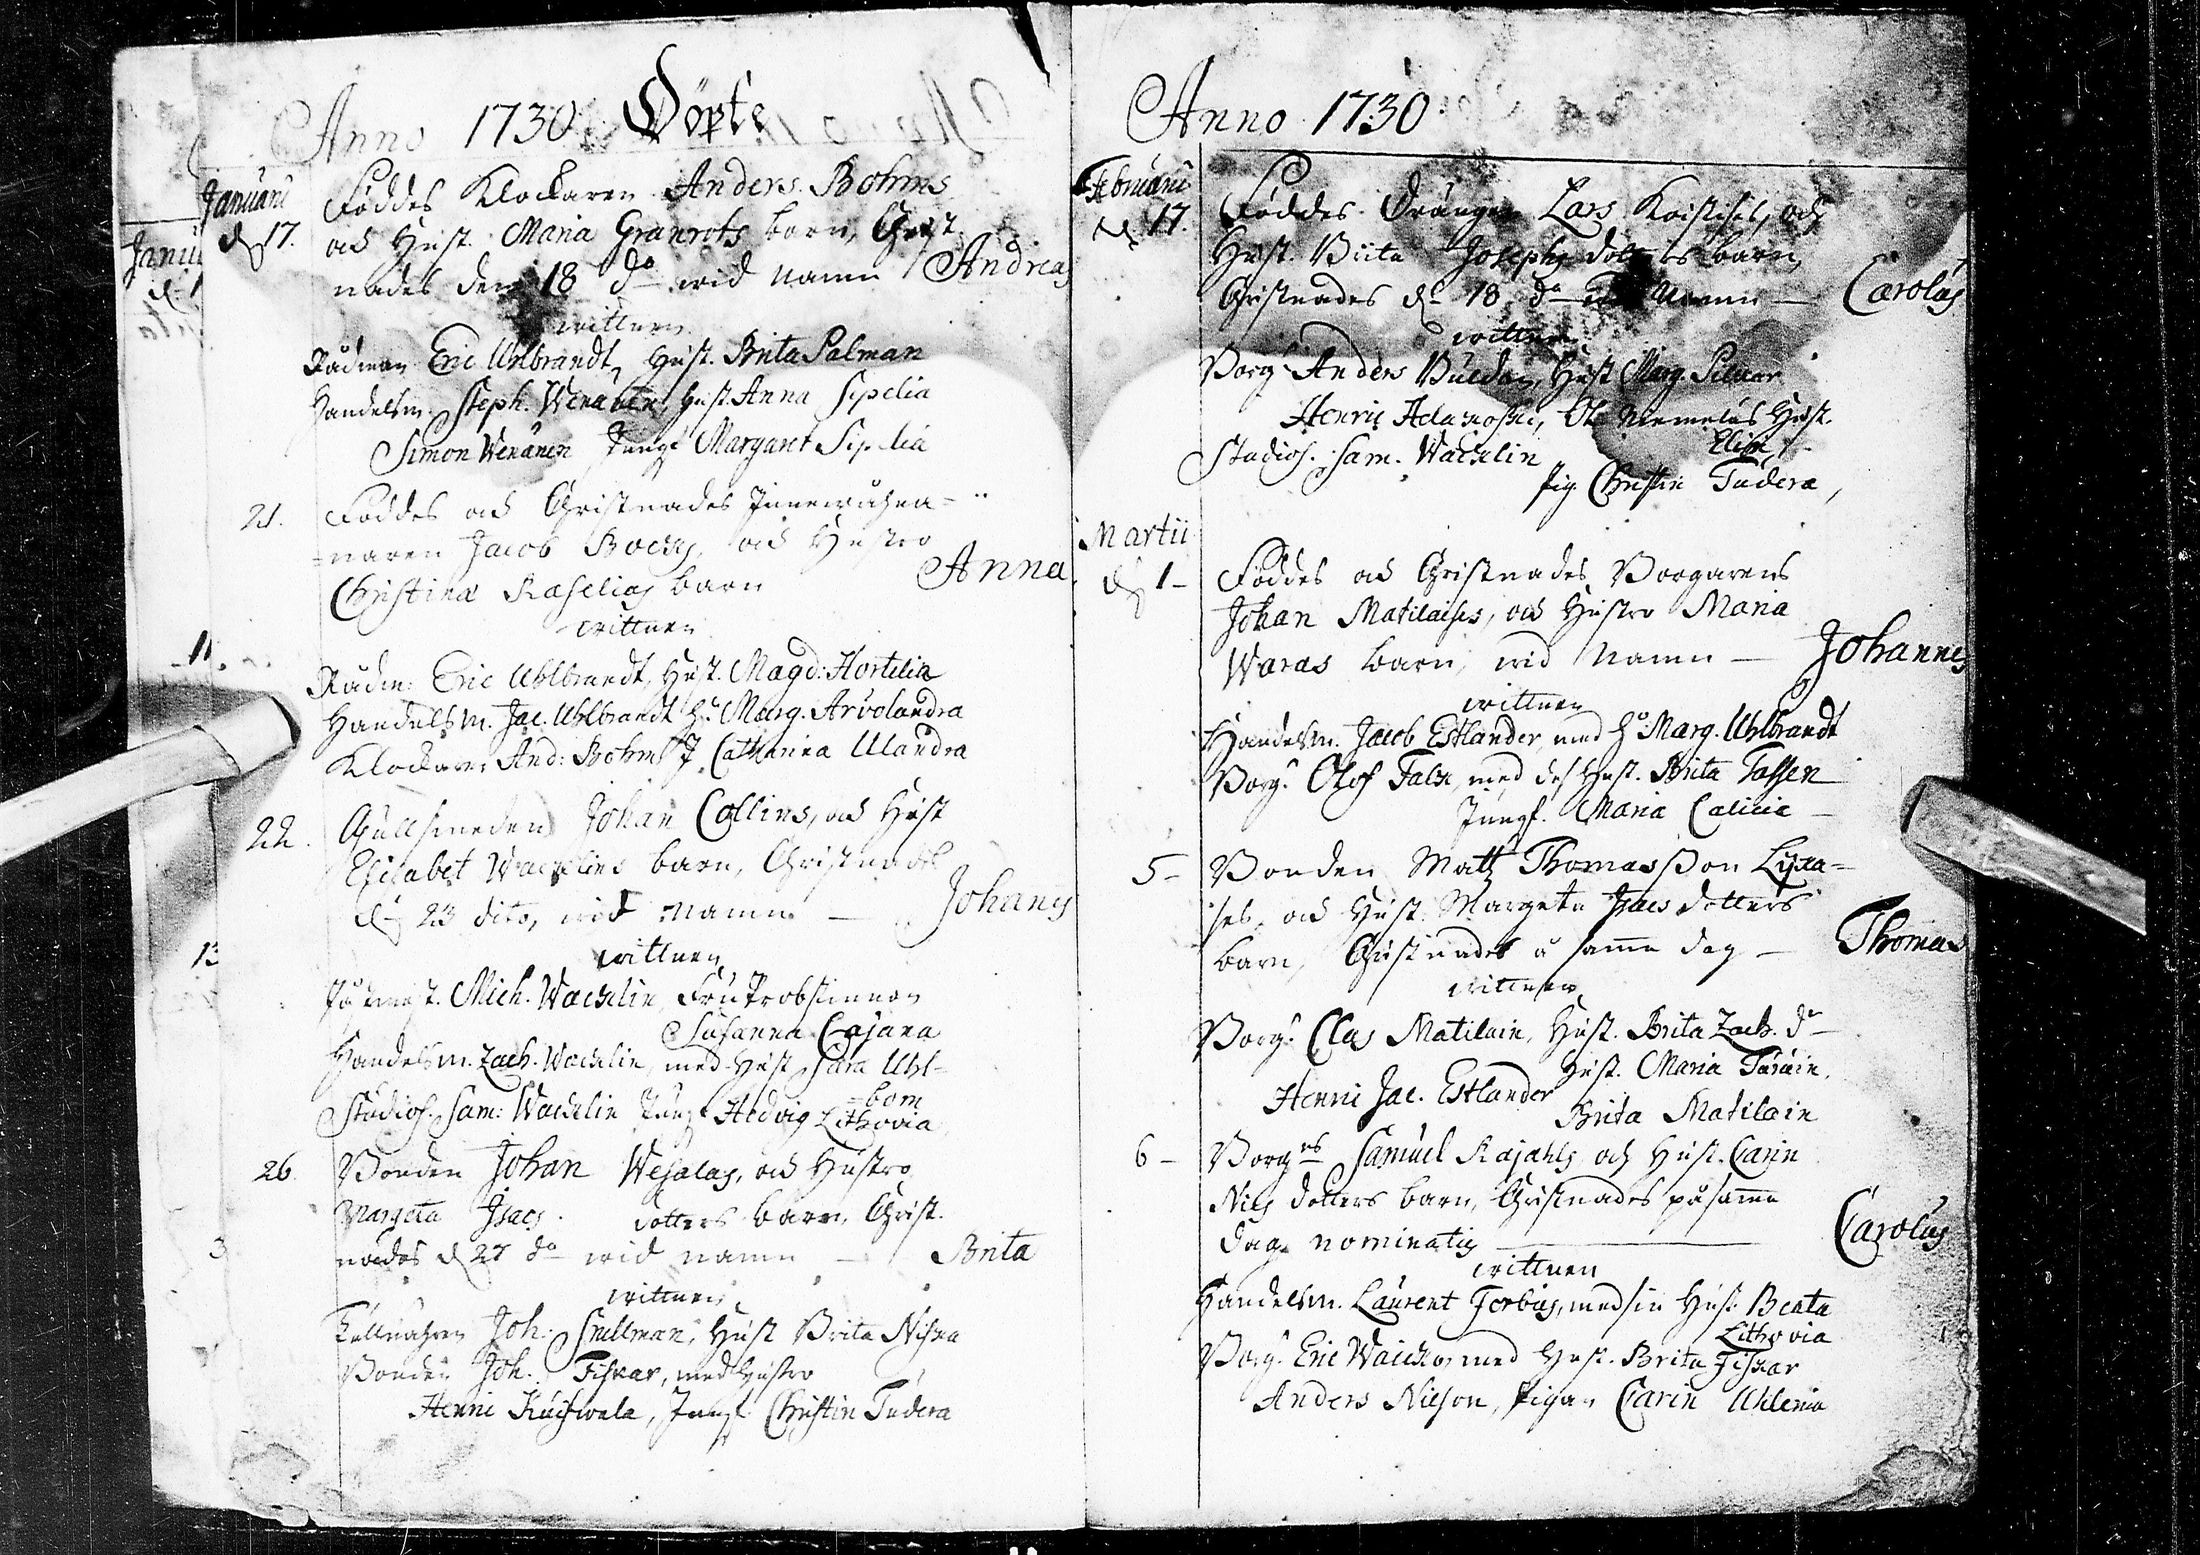 Anno 1730 Döpte
Januarii
d 17. Föddes Klockaren Anders Bohms
och Hust. Maria Granrots barn, Christ-
nades den 18 do wid namn Andreas
wittnen
Rådman Eric Uhlbrandt, Hust. Brita Salman
Handelsm. Steph. Wenänen, Hust. Anna Sipelia
Simon Wenänen Jungf Margaret Sipelia
21. Föddes och Christnades
naren Jacob och Hustro
Christina Raselias barn Anna
wittnen
Rådm: Eric Uhlbrandt, Hust. Magd: Hortelia
Handelsm. Jac. Uhlbrandt Hu Marg. Arvolandra
Klockaren And: Bohm J Catharina Ulandra
22. Gullsmeden Johan Collins, och Hust
Elisabet Wacklins barn, Christnades
d 23 dito, wid namn — Johans
wittnen
Mich. Wacklin, Fru Probstinnan
Susanna Cajana
Handelsm. Zach. Wacklin, med Hust Sara Uhl-
bom
Studios. Sam: Wacklin Jungf Hedvig Lithovia
26. Bonden Johan Wesalas, och Hustro
Margeta Isacs dotters barn, Christ-
nades d 27 do wid namn — Brita
wittnen
Joh. Snellman, Hust Brita Niska
Bonden Joh. Fiskar, med Hustro
Henric Jungf Christin Tudera
Anno 1730
Februarii
d 17. Föddes Drängen Lars och
Hust. Brita Josephs dotters barn,
Christnades d 18 do wid Namn — Carolus
wittnen
Borg. Anders Hust Marg.
Henric Ol. Hust.
Elisa
Studios. Sam. Wacklin
pig. Christin Tudera,
Martii
d 1 — Föddes och Christnades Borgarens
Johan Matilaises, och Hustro Maria
Waras barn, wid Namn — Johannes
wittnen
Handelsm. Jacob Estlander, med Hu Marg. Uhlbrandt
Borg. Olof Falck, med des Hust. Brita Fassen
Jungf. Maria Calicia —
5 — Bonden Matz Thomasson
och Hust. Margeta Isacs dotters
barn, Christnades å samma dag — Thomas
wittnen
Borg. Clas Matilain, Hust. Brita Zach. dr
Hust. Maria
Henric Jac. Estlander
Brita Matilain
6 — Borgres Samuel Kajahls och Hust. Carin
Nils dotters barn, Christnades på samma
dag, nominatis — Carolus
wittnen
Handelsm. Laurent Forbus, med sin Hust Beata
Lithovia
Borg. Eric med Hust. Brita Fiskar
Anders Nilson, pigan Carin Uhlenia